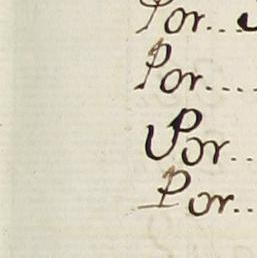 Por..
Por....
Por..
Por..